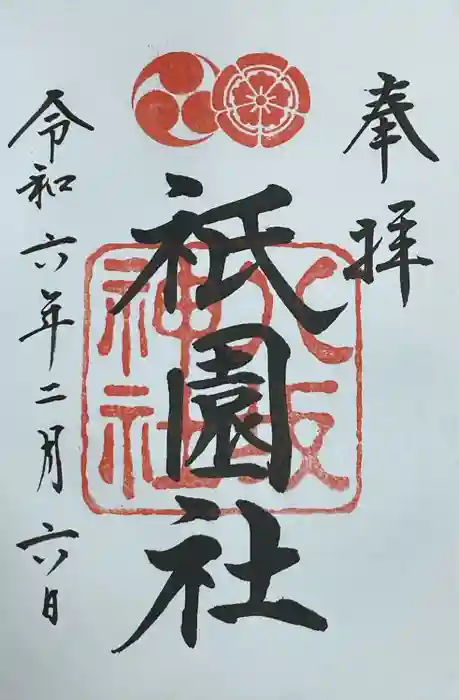 奉拝
八坂
神社
祇園社
令和六年二月六日